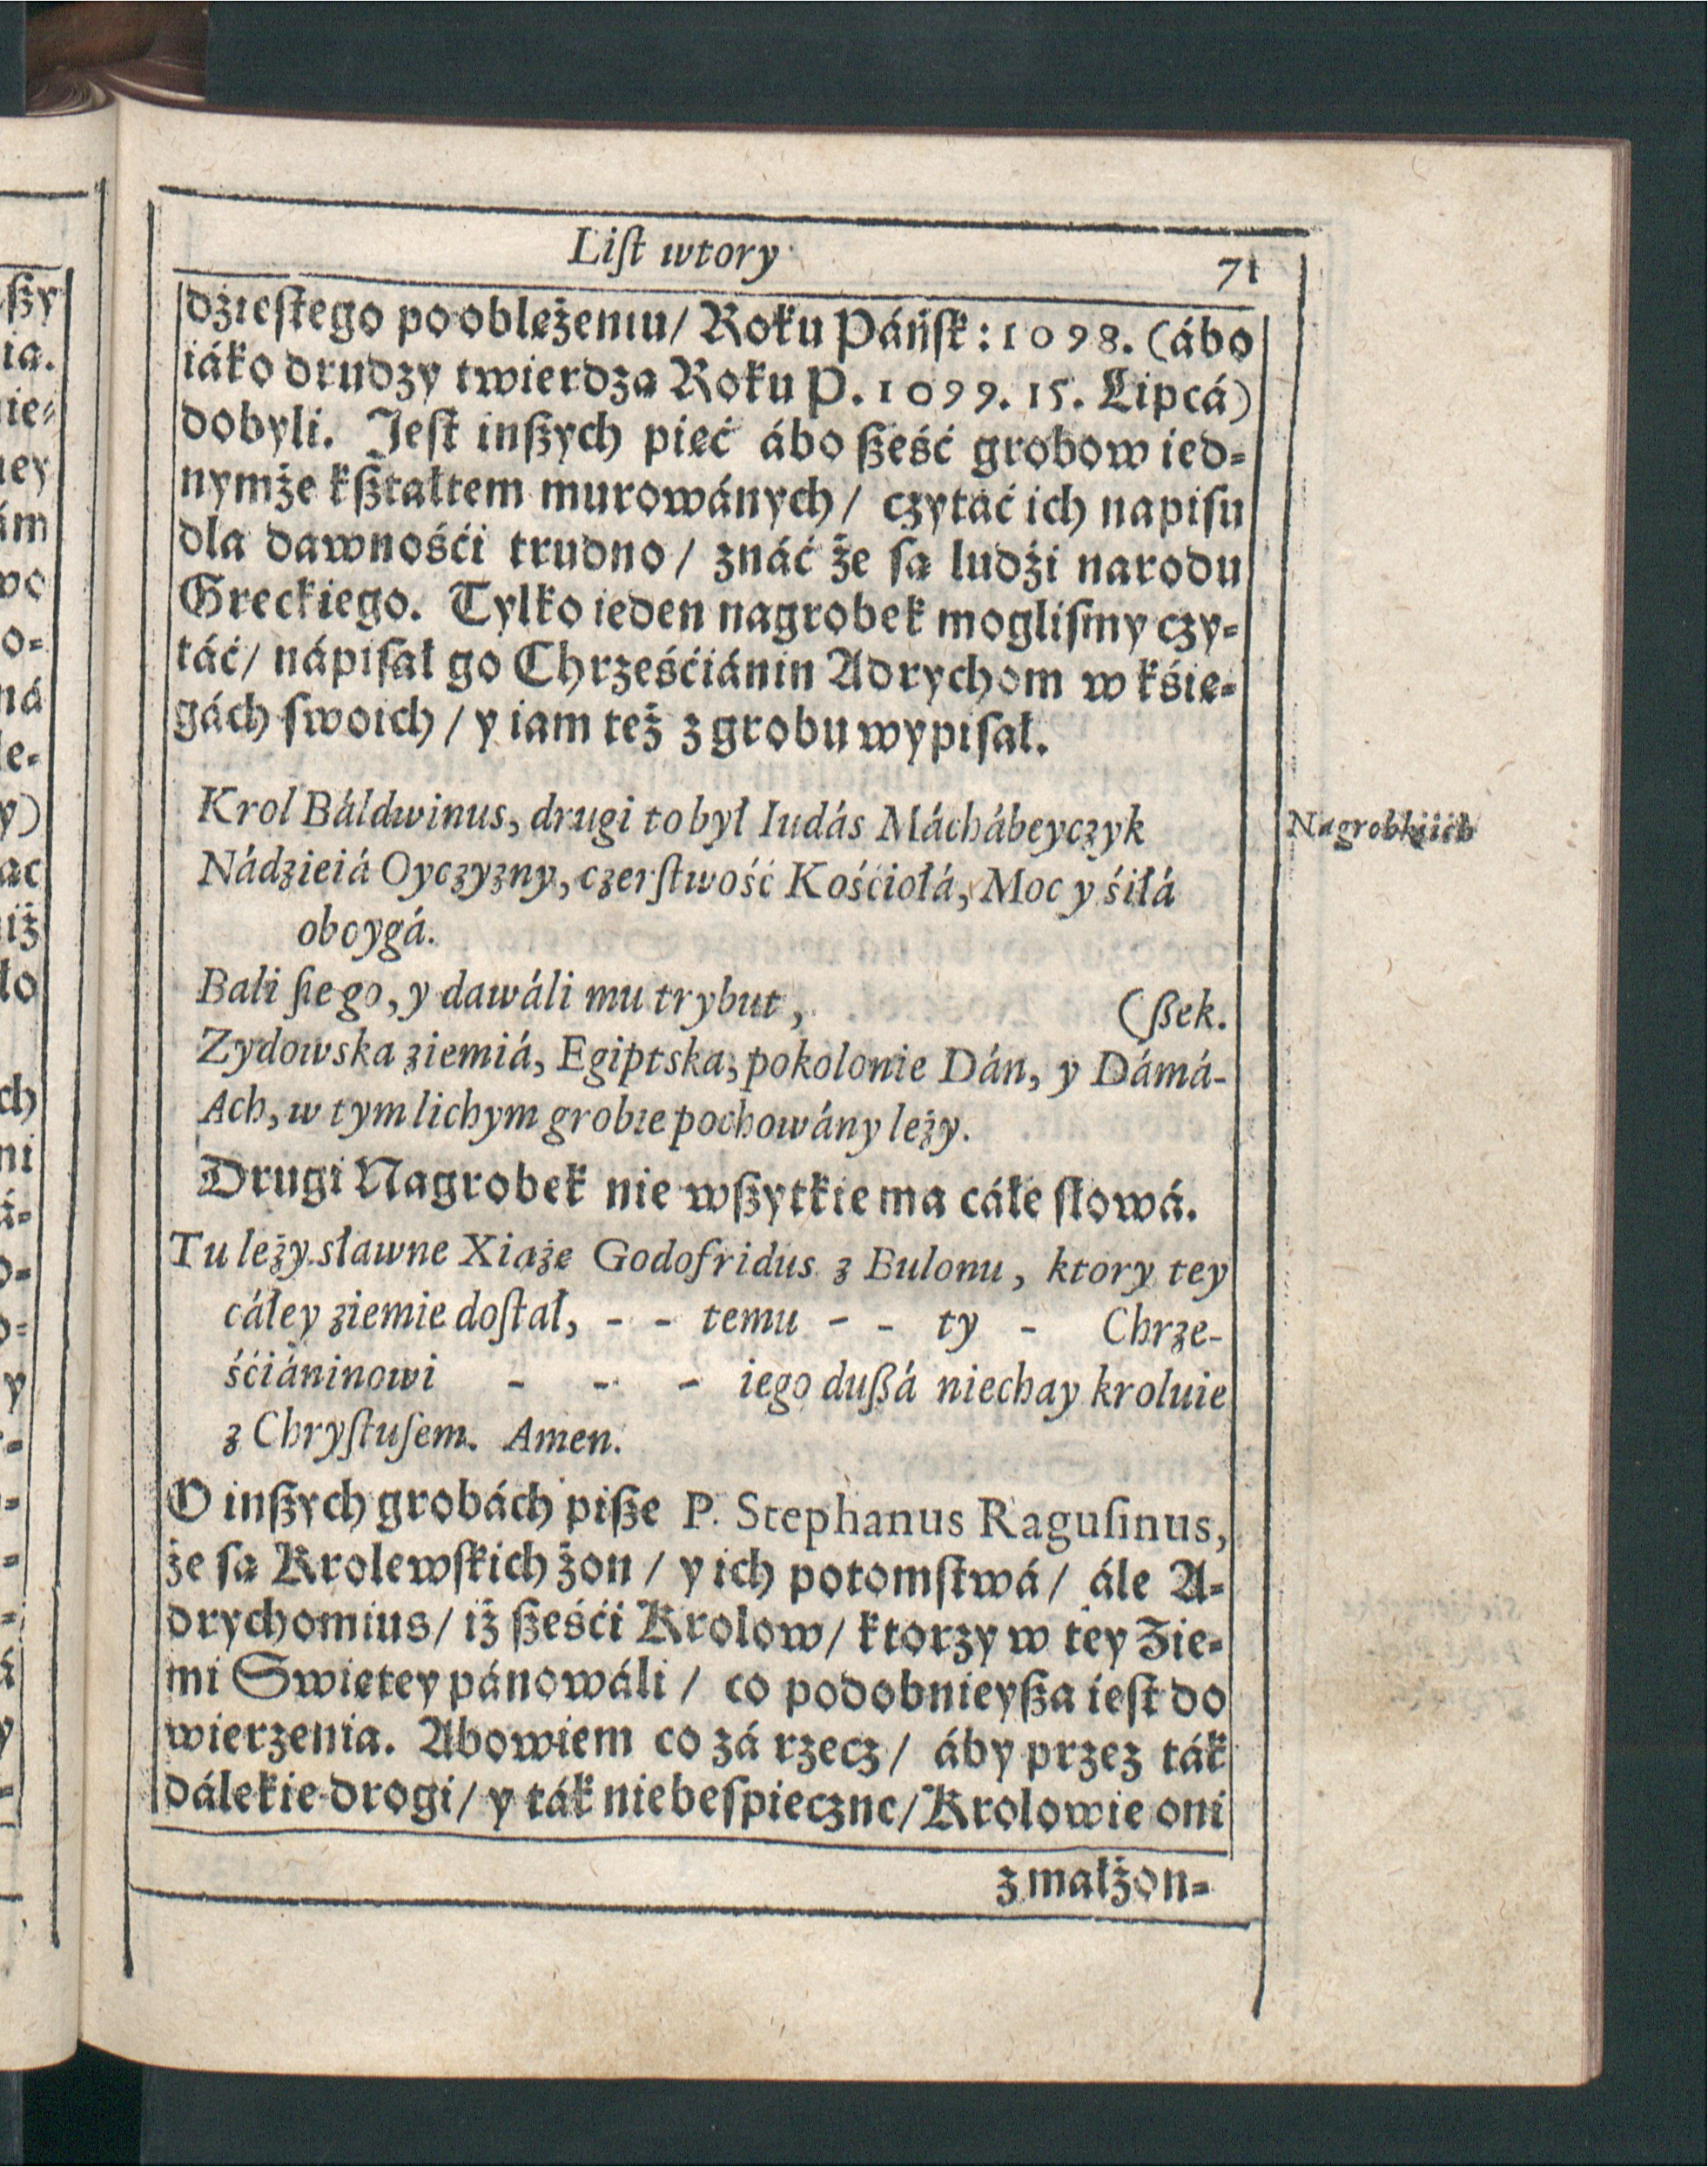 Liſt wtory
71
dźieſtego po oblężeniu/ Roku Páńſk: 1098. (ábo
iáko drudzy twierdzą Roku P. 1099. 15. Lipcá)
dobyli. Jeſt inßych pięć ábo ßeść grobow ied-
nymże kßtałtem murowánych/ czytáć ich napiſu
dla dawnośći trudno/ znáć że ſą ludźi narodu
Greckiego. Tylko ieden nagrobek mogliſmy czy-
táć/ nápiſał go Chrześćiánin Adrychom w kśię-
gách ſwoich/ y iam też z grobu wypiſał.
Krol Báldwinus, drugi to był Iudás Máchábeyczyk
Nagrobki ich
Nádzieiá Oyczyzny, czerſtwość Kośćiołá, Moc y śiłá
oboygá.
Bali ſię go, y dawáli mu trybut,
(ßek.
Zydowska ziemiá, Egiptska, pokolonie Dán, y Dámá-
Ach, w tym lichym grobie pochowány leży.
Drugi Nagrobek nie wßytkie ma cáłe ſłowá.
Tu leży sławne Xiąże Godofridus z Bulonu, ktory tey
cáłey ziemie doſtał, - - temu - - ty - Chrze-
śćiáninowi - - - iego dußá niechay kroluie
z Chryſtuſem. Amen.
O inßych grobách piße P. Stephanus Raguſinus,
że ſą Krolewſkich żon/ y ich potomſtwá/ ále A-
drychomius/ iż ßeśći Krolow/ ktorzy w tey Zie-
mi Swiętey pánowáli/ co podobnieyßa ieſt do
wierzenia. Abowiem co zá rzecz/ áby przez ták
dálekie drogi/ y ták niebeſpieczne/ Krolowie oni
z małżon-